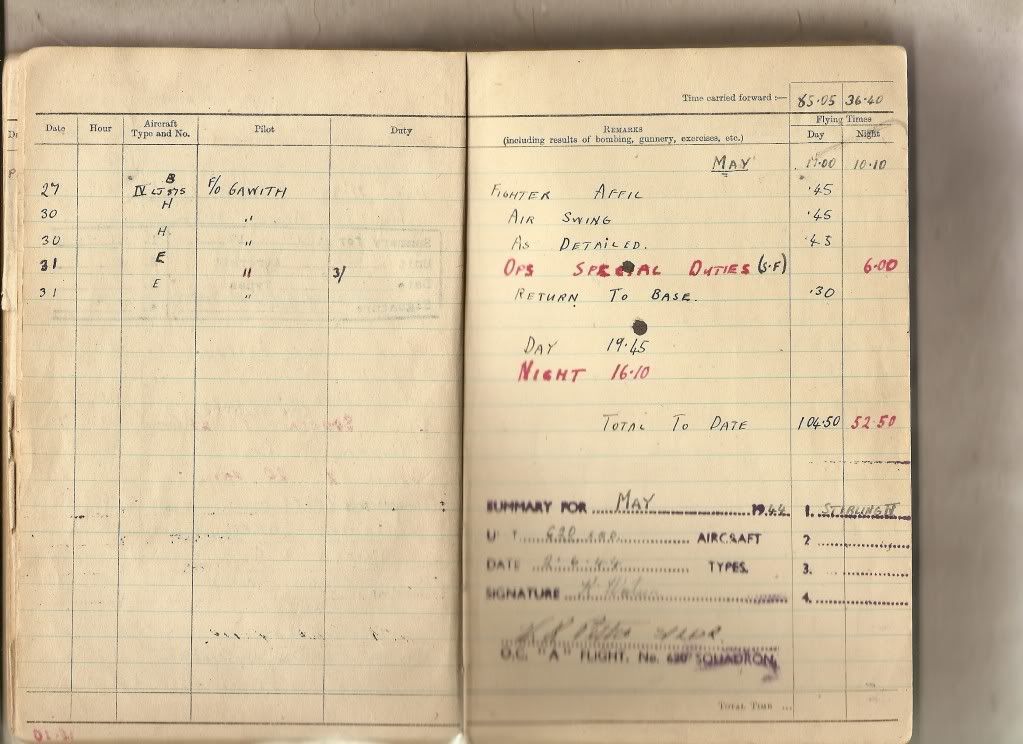 Time carried forward :— 85·05 36·40
Date Hour Aircraft Type and No. Pilot Duty REMARKS (including results of bombing, gunnery, exercises, etc.) Flying Times Day Night
MAY 19·00 10·10
27 B IV LJ 875 F/O GAWITH FIGHTER AFFIL ·45
30 H " AIR SWING ·45
30 H " AS DETAILED. ·45
31 E " 3/ OPS SPECIAL DUTIES (S.F) 6·00
31 E " RETURN TO BASE. ·30
DAY 19·45
NIGHT 16·10
TOTAL TO DATE 104·50 52·50
SUMMARY FOR MAY 1944 1. STIRLING IV
620 AIRCRAFT 2
DATE 2·6·44 TYPES. 3.
SIGNATURE 4.
O.C. "A" FLIGHT. No. 620 SQUADRON
TOTAL TIME ...